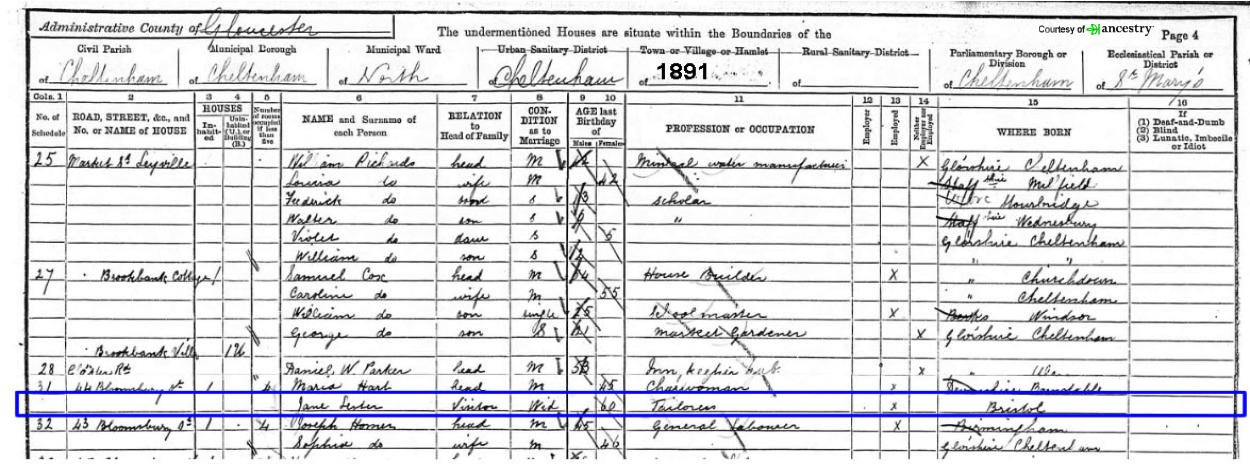 Administrative County of Gloucester
The undermentioned Houses are situate within the Boundaries of the
Courtesy of ancestry
Page 4
Civil Parish of Cheltenham
Municipal Borough of Cheltenham
Municipal Ward of North
Urban Sanitary District of Cheltenham
Town or Village or Hamlet of 1891
Rural Sanitary District of
Parliamentary Borough or Division of Cheltenham
Ecclesiastical Parish or District of St Mary's
Cols. 1 2 3 4 5 6 7 8 9 10 11 12 13 14 15 16
No. of Schedule
ROAD, STREET, &c., and No. or NAME of HOUSE
HOUSES
Inhabited
Uninhabited (U.) or Building (B.)
Number of rooms occupied if less than five
NAME and Surname of each Person
RELATION to Head of Family
CONDITION as to Marriage
AGE last Birthday of
Males Females
PROFESSION or OCCUPATION
Employer
Employed
Neither Employer nor Employed
WHERE BORN
If (1) Deaf-and-Dumb (2) Blind (3) Lunatic, Imbecile or Idiot
25 Market St William Richards head M Mineral water manufacturer X Glo'shire Cheltenham
Louisa do wife M 42 Staff shire
Frederick do S 13 scholar Stourbridge
Walter do son S " Staff shire Wednesbury
Violet do daur S 5 Glo'shire Cheltenham
William do son S " "
27 Brookbank Cottage 1 Samuel Cox head M 64 House Builder X " Churchdown
Caroline do wife M 55 " Cheltenham
William do son single 25 Schoolmaster X Bucks Windsor
George do son S 21 Market Gardener X Glo'shire Cheltenham
Brookbank Villa 1U
28 Daniel W. Parker head M Inn keeper X "
31 44 Bloomsbury St 1 4 Maria Hart head M 45 Charwoman X
Jane Lester Visitor Wid 60 Tailoress X Bristol
32 43 Bloomsbury St 1 4 Joseph Homer head M 45 General Labourer X Birmingham
Sophia do wife M 46 Glo'shire Cheltenham